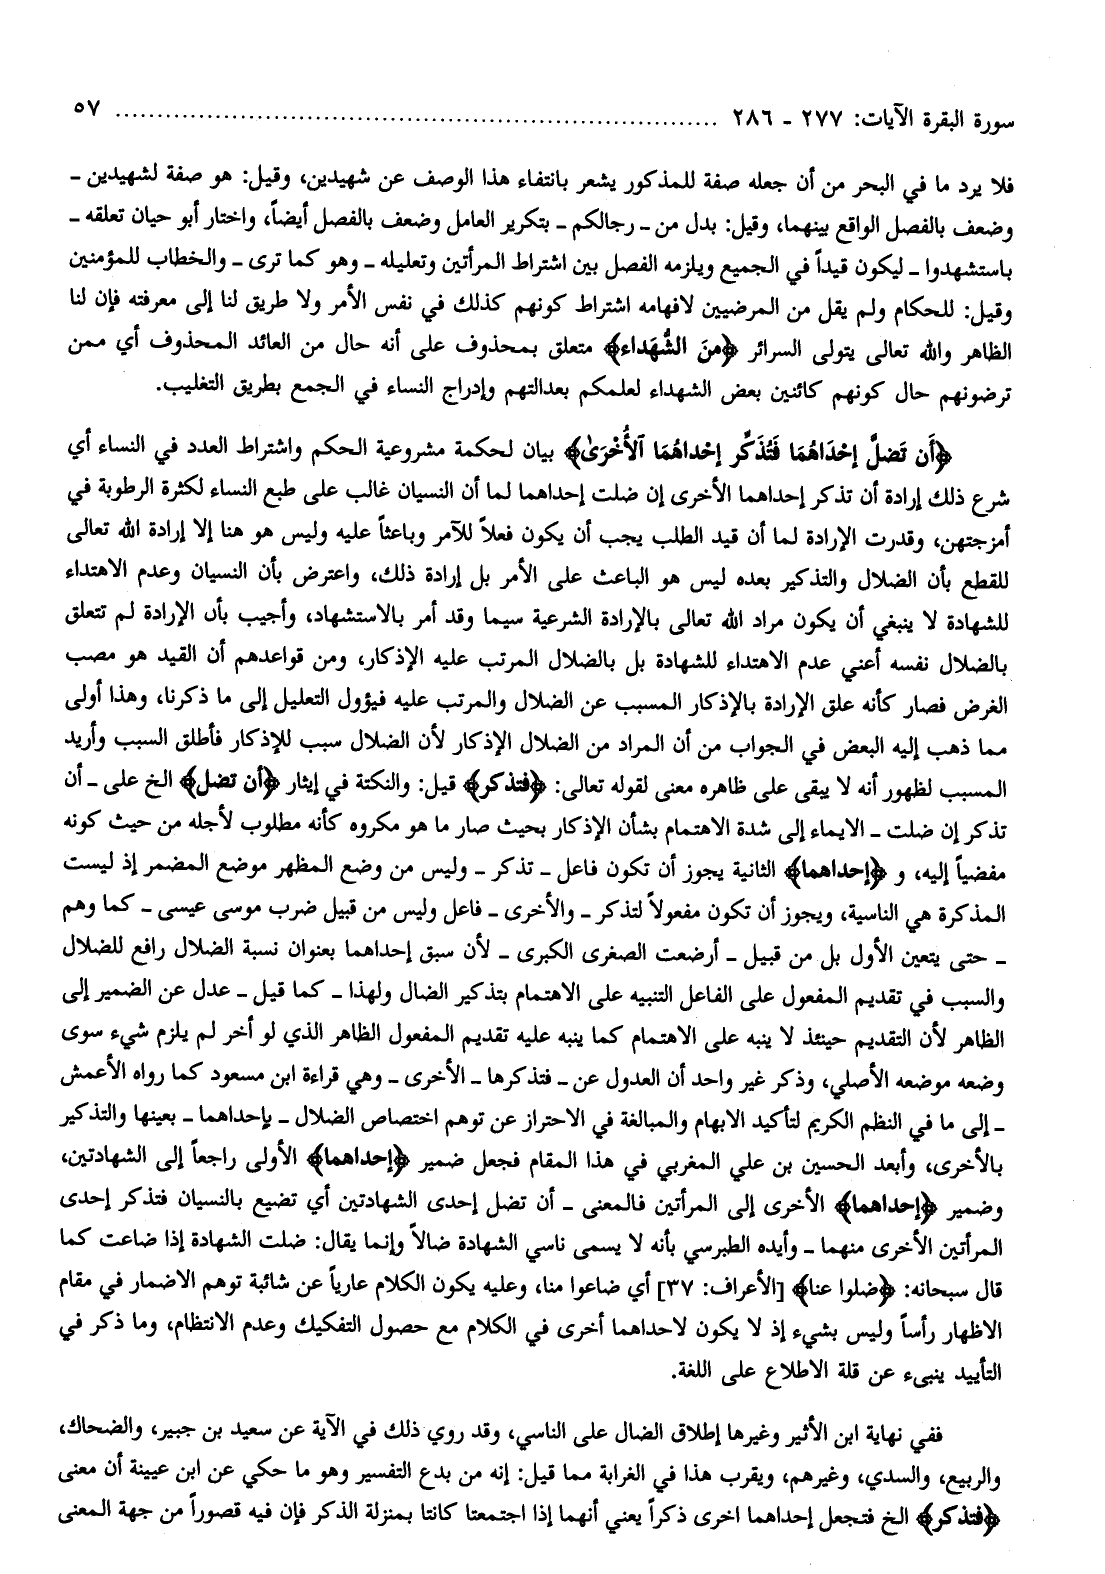 سورة البقرة الآيات: ٢٧٧ ـ ٢٨٦ ........................................................................ ٥٧
فلا يرد ما في البحر من أن جعله صفة للمذكور يشعر بانتفاء هذا الوصف عن شهيدين، وقيل: هو صفة لشهيدين ـ
وضعف بالفصل الواقع بينهما، وقيل: بدل من ـ رجالكم ـ بتكرير العامل وضعف بالفصل أيضاً، واختار أبو حيان تعلقه ـ
باستشهدوا ـ ليكون قيداً في الجميع ويلزمه الفصل بين اشتراط المرأتين وتعليله ـ وهو كما ترى ـ والخطاب للمؤمنين
وقيل: للحكام ولم يقل من المرضيين لافهامه اشتراط كونهم كذلك في نفس الأمر ولا طريق لنا إلى معرفته فإن لنا
الظاهر والله تعالى يتولى السرائر ﴿منَ الشُّهَداء﴾ متعلق بمحذوف على أنه حال من العائد المحذوف أي ممن
ترضونهم حال كونهم كائنين بعض الشهداء لعلمكم بعدالتهم وإدراج النساء في الجمع بطريق التغليب.
﴿أَن تَضلَّ إحْدَاهُمَا فَتُذَكِّر إحْداهُمَا ٱلأُخْرَىٰ﴾ بيان لحكمة مشروعية الحكم واشتراط العدد في النساء أي
شرع ذلك إرادة أن تذكر إحداهما الأخرى إن ضلت إحداهما لما أن النسيان غالب على طبع النساء لكثرة الرطوبة في
أمزجتهن، وقدرت الإرادة لما أن قيد الطلب يجب أن يكون فعلاً للآمر وباعثاً عليه وليس هو هنا إلا إرادة الله تعالى
للقطع بأن الضلال والتذكير بعده ليس هو الباعث على الأمر بل إرادة ذلك، واعترض بأن النسيان وعدم الاهتداء
للشهادة لا ينبغي أن يكون مراد الله تعالى بالإرادة الشرعية سيما وقد أمر بالاستشهاد، وأجيب بأن الإرادة لم تتعلق
بالضلال نفسه أعني عدم الاهتداء للشهادة بل بالضلال المرتب عليه الإذكار، ومن قواعدهم أن القيد هو مصب
الغرض فصار كأنه علق الإرادة بالإذكار المسبب عن الضلال والمرتب عليه فيؤول التعليل إلى ما ذكرنا، وهذا أولى
مما ذهب إليه البعض في الجواب من أن المراد من الضلال الإذكار لأن الضلال سبب للإذكار فأطلق السبب وأريد
المسبب لظهور أنه لا يبقى على ظاهره معنى لقوله تعالى: ﴿فتذكر﴾ قيل: والنكتة في إيثار ﴿أن تضل﴾ الخ على ـ أن
تذكر إن ضلت ـ الايماء إلى شدة الاهتمام بشأن الإذكار بحيث صار ما هو مكروه كأنه مطلوب لأجله من حيث كونه
مفضياً إليه، و ﴿إحداهما﴾ الثانية يجوز أن تكون فاعل ـ تذكر ـ وليس من وضع المظهر موضع المضمر إذ ليست
المذكرة هي الناسية، ويجوز أن تكون مفعولاً لتذكر ـ والأخرى ـ فاعل وليس من قبيل ضرب موسى عيسى ـ كما وهم
ـ حتى يتعين الأول بل من قبيل ـ أرضعت الصغرى الكبرى ـ لأن سبق إحداهما بعنوان نسبة الضلال رافع للضلال
والسبب في تقديم المفعول على الفاعل التنبيه على الاهتمام بتذكير الضال ولهذا ـ كما قيل ـ عدل عن الضمير إلى
الظاهر لأن التقديم حينئذ لا ينبه على الاهتمام كما ينبه عليه تقديم المفعول الظاهر الذي لو أخر لم يلزم شيء سوى
وضعه موضعه الأصلي، وذكر غير واحد أن العدول عن ـ فتذكرها ـ الأخرى ـ وهي قراءة ابن مسعود كما رواه الأعمش
ـ إلى ما في النظم الكريم لتأكيد الابهام والمبالغة في الاحتراز عن توهم اختصاص الضلال ـ بإحداهما ـ بعينها والتذكير
بالأخرى، وأبعد الحسين بن علي المغربي في هذا المقام فجعل ضمير ﴿إحداهما﴾ الأولى راجعاً إلى الشهادتين،
وضمير ﴿إحداهما﴾ الأخرى إلى المرأتين فالمعنى ـ أن تضل إحدى الشهادتين أي تضيع بالنسيان فتذكر إحدى
المرأتين الأخرى منهما ـ وأيده الطبرسي بأنه لا يسمى ناسي الشهادة ضالاً وإنما يقال: ضلت الشهادة إذا ضاعت كما
قال سبحانه: ﴿ضلوا عنا﴾ [الأعراف: ٣٧] أي ضاعوا منا، وعليه يكون الكلام عارياً عن شائبة توهم الاضمار في مقام
الاظهار رأساً وليس بشيء إذ لا يكون لاحداهما أخرى في الكلام مع حصول التفكيك وعدم الانتظام، وما ذكر في
التأييد ينبىء عن قلة الاطلاع على اللغة.
ففي نهاية ابن الأثير وغيرها إطلاق الضال على الناسي، وقد روي ذلك في الآية عن سعيد بن جبير، والضحاك،
والربيع، والسدي، وغيرهم، ويقرب هذا في الغرابة مما قيل: إنه من بدع التفسير وهو ما حكي عن ابن عيينة أن معنى
﴿فتذكر﴾ الخ فتجعل إحداهما اخرى ذكراً يعني أنهما إذا اجتمعتا كانتا بمنزلة الذكر فإن فيه قصوراً من جهة المعنى